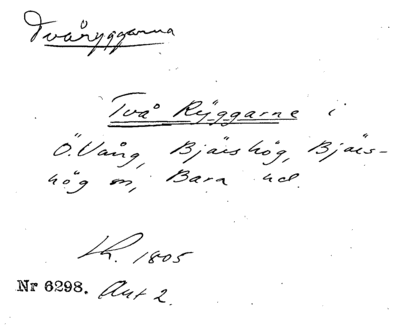 Tvåryggarna
Två Rÿggarne i
Ö. Vång, Bjäršhög, Bjärs-
hög sn, Bara hd.
Lh. 1805
Nr 6298. Akt 2.